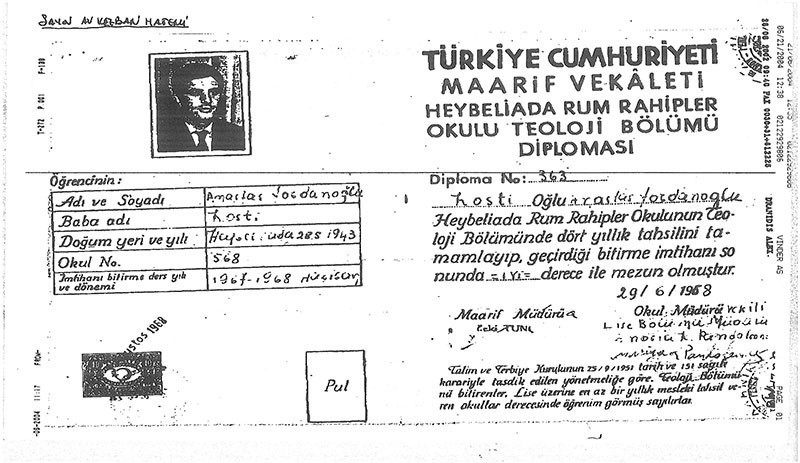 SAYIN AV KEZBAN HATEMİ
TÜRKİYE CUMHURİYETİ
MAARİF VEKÂLETİ
HEYBELİADA RUM RAHİPLER
OKULU TEOLOJİ BÖLÜMÜ
DİPLOMASI
Öğrencinin:
Adı ve Soyadı
Baba adı
Hosti
Doğum yeri ve yılı
28.5 1943
Okul No.
568
İmtihanı bitirme ders yılı ve dönemi
1967-1968
Diploma No: 363
Hosti Oğlu
Heybeliada Rum Rahipler Okulunun Teo-
loji Bölümünde dört yıllık tahsilini ta-
mamlayıp, geçirdiği bitirme imtihanı so
nunda =iyi= derece ile mezun olmuştur.
29/6/1968
Maarif Müdürü
Okul Müdürü vekili
Lise Bölümü Müdürü
Talim ve Terbiye Kurulunun 25/9/1951 tarih ve 151 sayılı
karariyle tasdik edilen yönetmeliğe göre. Teoloji Bölümü-
nü bitirenler. Lise üzerine en az bir yıllık mesleki tahsil ve-
ren okullar derecesinde öğrenim görmüş sayılırlar.
1968
Pul
P-100
P.001
T-272
06/21/2004 12:38
VINDER AS
PAGE 01